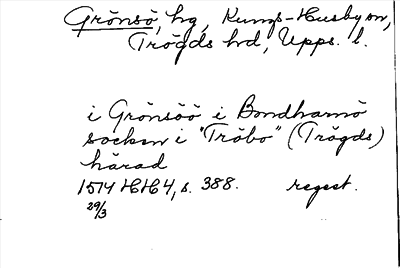 Grönsö, hg, Kungs-Husby sn,
Trögds hd, Upps. l.
i Grönsöö i Bondhamö
socken i "Tröbo" (Trögds)
härad
1514 HH 4, s. 388. regest.
29/3